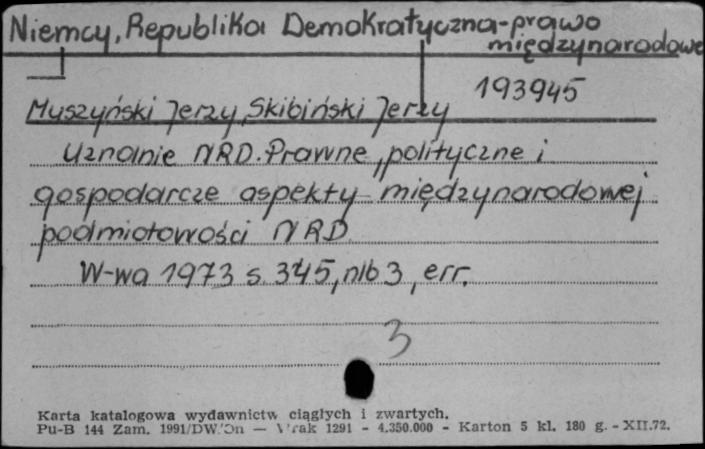 Niemcy, Republika Demokratyczna-prawo
międzynarodowe
193945
Muszyński Jerzy, Skibiński Jerzy
Uznanie NRD. Prawne, polityczne i
gospodarcze aspekty międzynarodowej
podmiotowości NRD
W-wa 1973 s. 345, nlb 3, err.
3
Karta katalogowa wydawnictw ciągłych i zwartych.
Pu-B 144 Zam. 1991/DW. — 1291 - 4.350.000 - Karton 5 kl. 180 g. - XII.72.